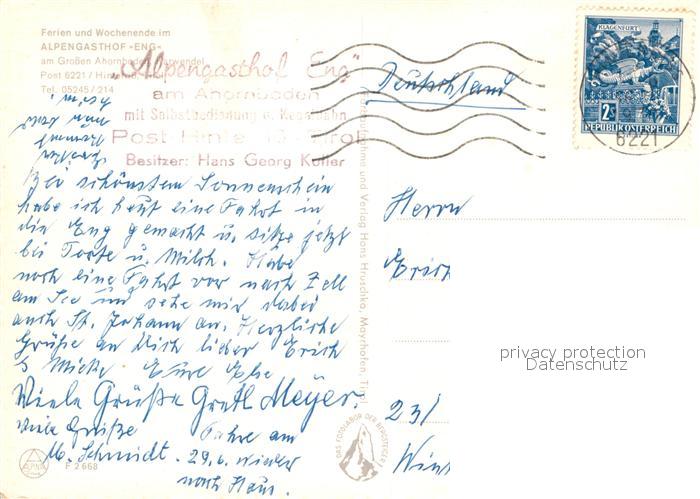 Ferien und Wochenende im
ALPENGASTHOF «ENG»
am Großen Ahornboden
Post 6221 /
Tel. 05245/214
„Alpengasthof Eng“
am Ahornboden
mit Selbstbedienung u. Kegelbahn
Post Hinterriß, Tirol
Besitzer: Hans Georg Kofler
Bei schönstem Sonnenschein
habe ich heut eine Fahrt in
die Eng gemacht u. sitze jetzt
bei Torte u. Milch. Habe
noch eine Fahrt vor nach Zell
am See und sehe mir dabei
auch St. Johann an. Herzliche
Grüße an Dich lieber Erich
Eure Else
Viele Grüße Gretl Meyer.
Viele Grüße
M. Schmidt.
Fahre am
29.6. wieder
nach Haus.
F 2668
und Verlag Hans Hruschka, Mayrhofen, Tirol
DAS FOTOLABOR DER BERGSTEIGER
Deutschland
KLAGENFURT
2S
REPUBLIK ÖSTERREICH
6221
Herrn
Erich
23/
privacy protection
Datenschutz